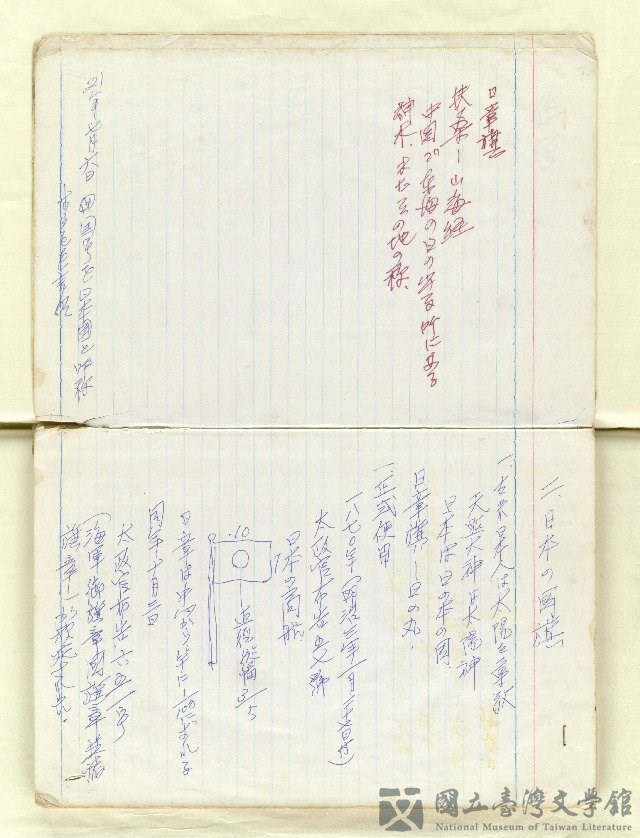 日章旗
扶桑—山海経
中国の東海の日の出る所にある
神木、または其の地の称、
国号を日本国と呼称
二、日本の国旗
一、古来日本人は太陽を尊敬
天照大神は太陽神
日本は日の本の国、
日章旗—日の丸・
一、正式使用
一八七〇年(明治三年一月二十七日付)
太政官布告五七號
日本の商船
10
7
直径縦幅3/5
日章は中心から竿に1/100によれる
同年十月三日
太政官布告六五一号
(海軍御旗章国旗章並諸
旗章
國立臺灣文學館
National Museum of Taiwan Literature